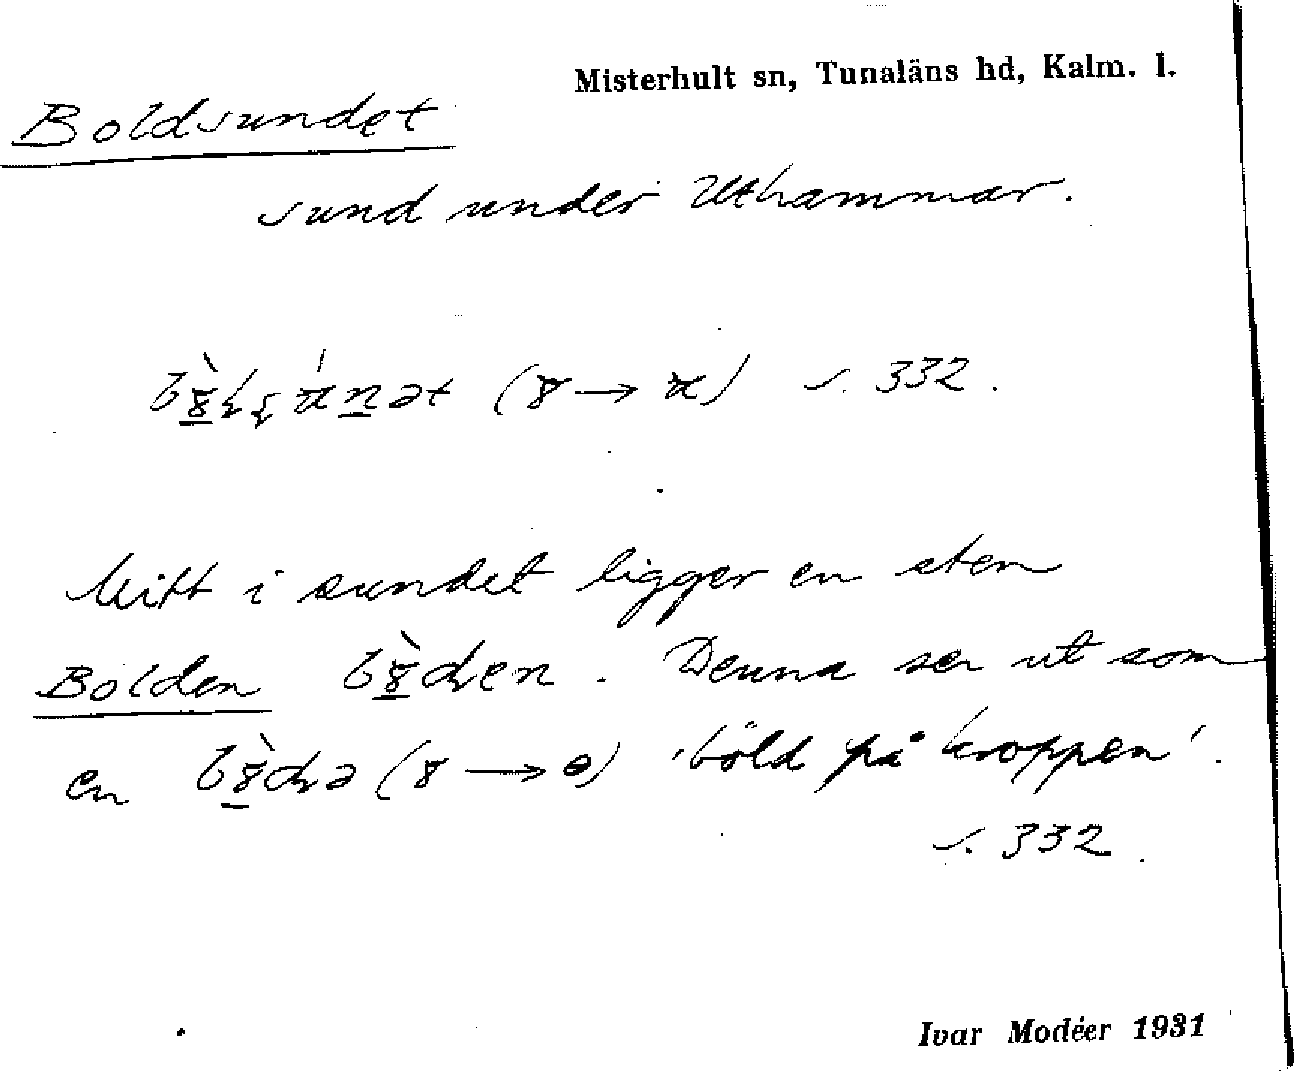 Misterhult sn, Tunaläns hd, Kalm. l.
Boldsundet
sund under Uthammar.
s. 332.
Mitt i sundet ligger en sten
Bolden . Denna ser ut som
en 'böld på kroppen'.
s. 332.
Ivar Modéer 1931